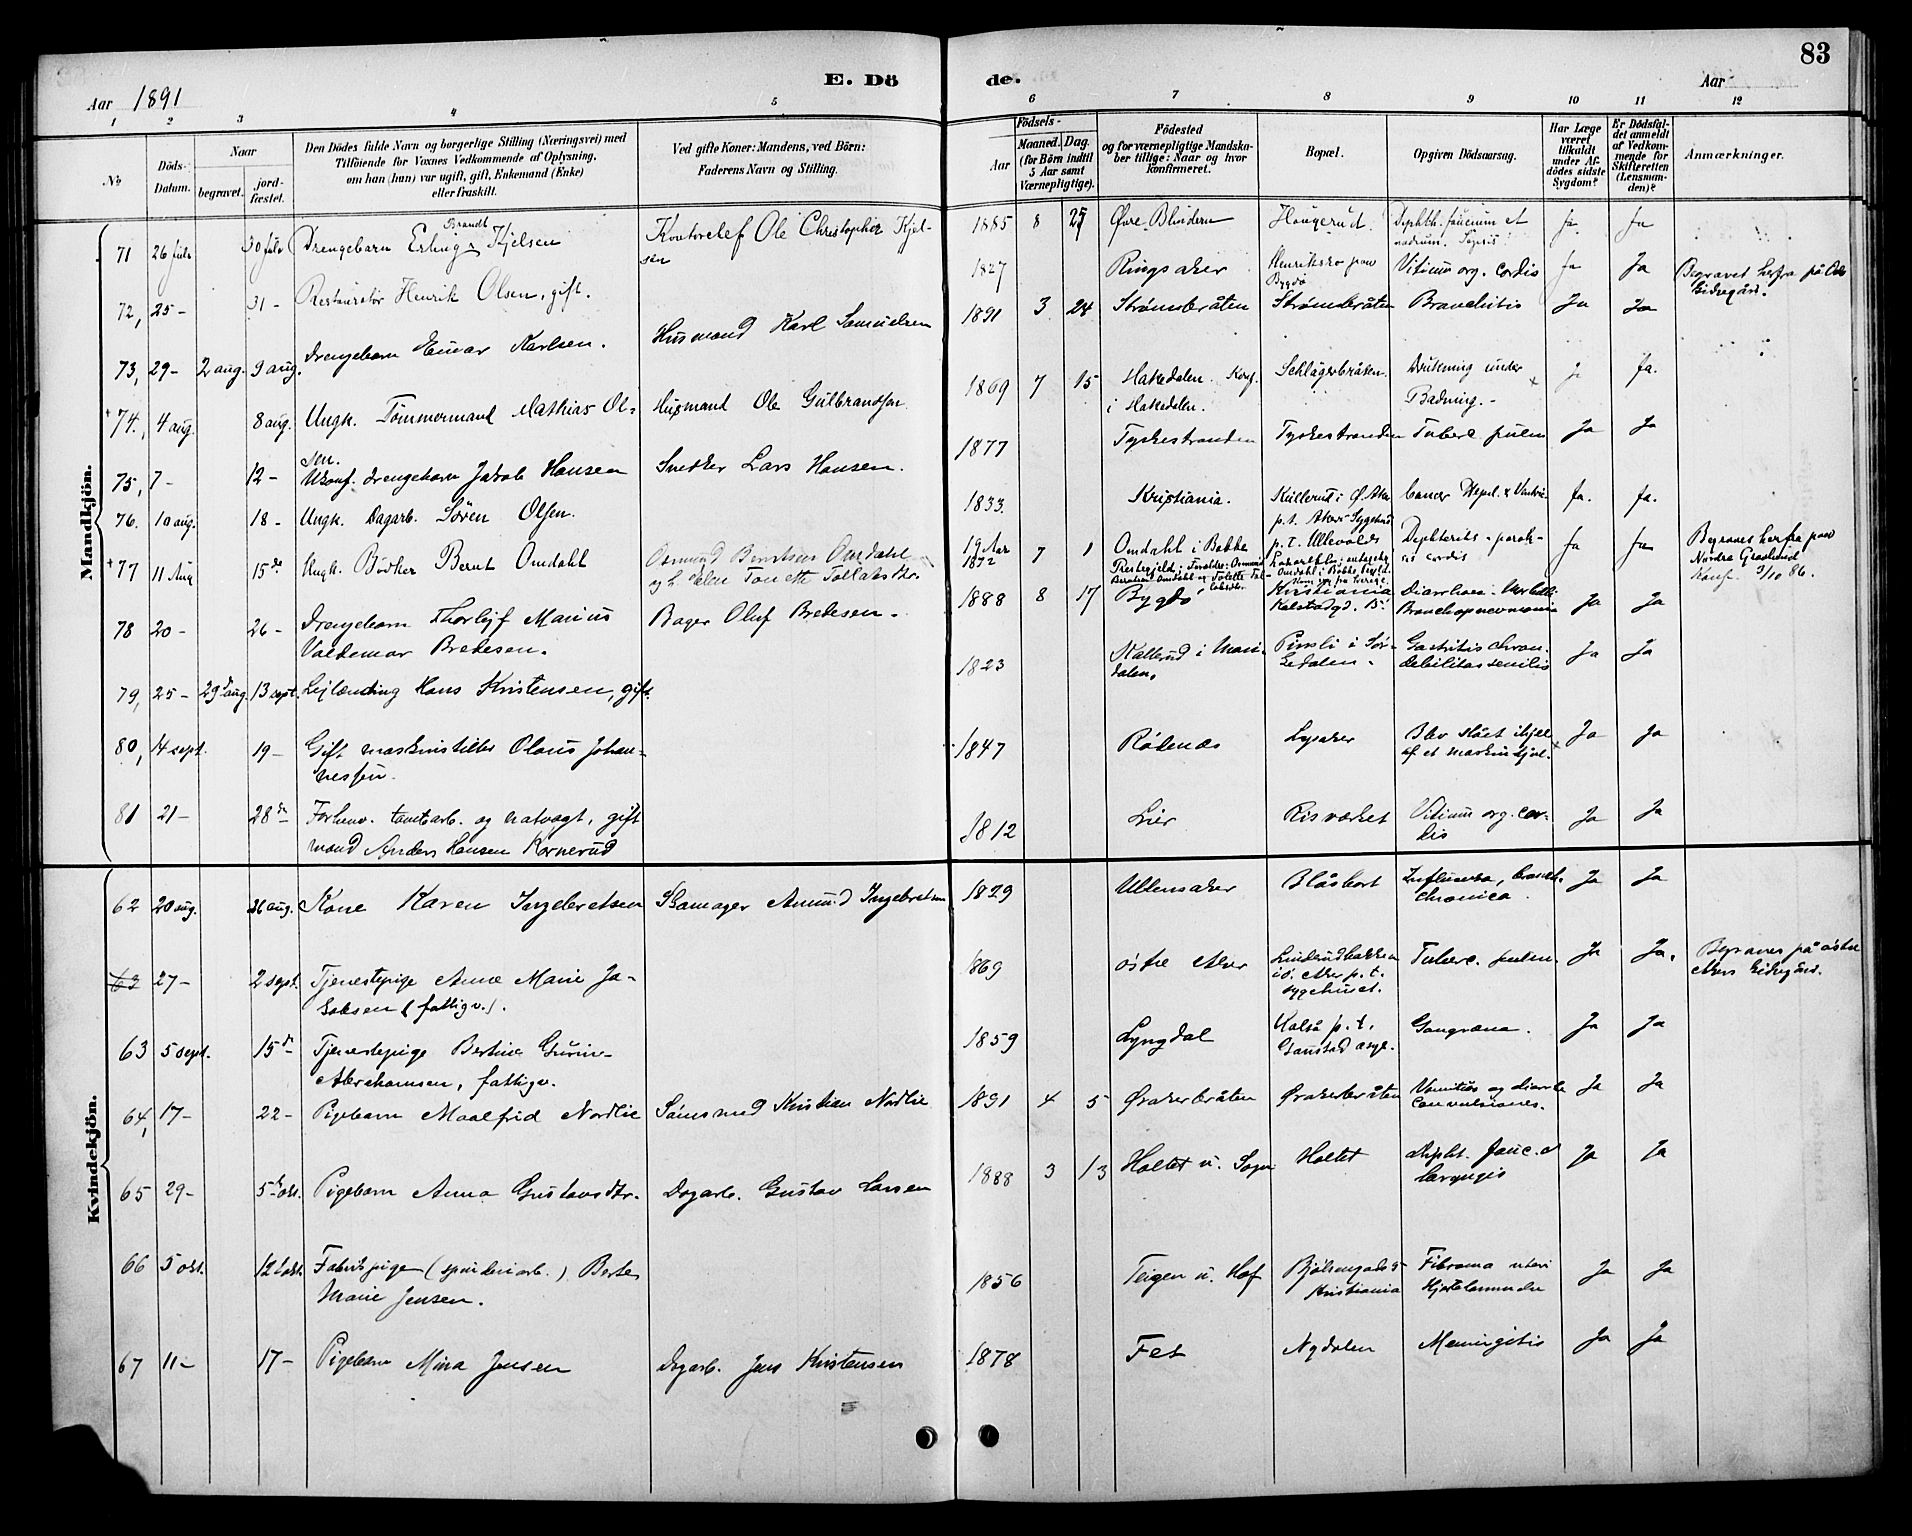 83
E. Dö de.
Aar 1891
Aar
1 2 3 4 5 6 7 8 9 10 11 12
No
Döds-Datum.
Naar
begravet.
jord-fæstet.
Den Dödes fulde Navn og borgerlige Stilling (Næringsvei) med
Tilföiende for Voxnes Vedkommende af Oplysning,
om han (hun) var ugift, gift, Enkemand (Enke)
eller fraskilt.
Ved gifte Koner: Mandens, ved Börn:
Faderens Navn og Stilling.
Födsels-
Aar
Maaned. Dag.
(for Börn indtil
5 Aar samt
Værnepligtige).
Födested
og for værnepligtige Mandska-
ber tillige: Naar og hvor
konfirmeret.
Bopæl.
Opgiven Dödsaarsag.
Har Læge
været
tilkaldt
under Af-
dödes sidste
Sygdom?
Er Dödsfal-
det anmeldt
af Vedkom-
mende for
Skifteretten
(Lensman-
den)?
Anmærkninger.
Mandkjön.
71 26 juli 30 juli Drengebarn Erling Brandt Kjelsen Kontorchef Ole Christopher Kjel-
sen 1885 8 25 Øvre Blindern Haugerud. Diphth. faucium et
Sepsis Ja Ja
72, 25- 31- Restauratør Henrik Olsen, gift. 1827 Ringsaker paa
Bygdø Vitium org. cordis Ja Ja Begravet herfra på
Kirkegård.
73, 29- 2 aug. 9 aug. Drengebarn Einar Karlsen. Husmand Karl Samuelsen 1891 3 24 Strømsbråten Strømsbråten Bronchitis Ja Ja
+74, 4 aug. 8 aug. Ungk. Tömmermand Mathias Ol-
sen. Husmand Ole Gulbrandsen 1869 7 15 Hakedalen. Konf.
i Hakedalen. Schlägerbråten. Drukning under
Badning. x Ja Ja.
75, 7- 12- Ukonf. drengebarn Jakob Hansen Snedker Lars Hansen. 1877 Tyskestranden Tyskestranden Tuberc. pulm Ja Ja
76. 10 aug. 18- Ungk. Dagarb. Sören Olsen. 1833. Kristiania. Kullerud i Ø. Aker
p. t. Akers Sygehus Cancer Hepat. & Ventri- Ja. Ja.
+77 11 Aug 15 de Ungk. Bödker Bernt Omdahl Osmund Berntsen Omdahl
og h. Tonette Tollaksdtr. 19 Aar
1872 7 1 Omdahl i Bakke
Prestegjeld p. t. Ullevolds
Diphterits - paraly-
sis cordis Ja Ja Begraves herfra paa
Nordre Gravlund
Konf. 3/10 86.
78 20- 26- Drengebarn Thorleif Marius
Valdemar Bredesen. Bager Oluf Bredesen. 1888 8 17 Bygdø Kristiania
Diarrhoea.
Bronchopneumonia Ja Ja
79, 25- 29 aug. 13 sept. Lejlænding Hans Kristensen, gift. 1823 Kallerud i Mari-
dalen. i Sör-
kedalen. Gastritis chron.
debilitas senilis Ja Ja
80, 14 sept. 19- Gift maskinstiller Olaus Johan-
nessen. 1847 Rödenæs Lysaker Blev slået ihjel
af et maskinhjul. x Ja Ja
81 21- 28 de Forhenv. tomtearb. og natvagt, gift
mand Anders Hansen Kornerud 1812 Lier Risværket Vitium org. cor-
dis Ja Ja
Kvindekjön.
62 20 aug. 26 aug. Kone Karen Ingebretsen Skomager Amund Ingebretsen 1829 Ullensaker Blåskort Influenza, bronch.
chronica Ja Ja
63 27- 2 sept. Tjenestepige Anne Marie Ja-
kobsen (fattigv.). 1869 Östre Aker Linderudbakken
i ö. Aker p. t.
sygehuset. Tuberc. pulm. Ja Ja. Begraves på östre
Akers Kirkegård.
63 5 sept. 15 de Tjenestepige Bertine Gurine
Abrahamsen, fattigv. 1859 Lyngdal p. t.
Gaustad asyl. Gangræna. Ja Ja
64, 17- 22- Pigebarn Maalfrid Nordlie Sömsmed Kristian Nordlie 1891 4 5 Ørakerbråten Ørakerbråten Vomitus og diarrhe
Convulsiones. Ja Ja
65 29- 5 okt. Pigebarn Anna Gustavsdtr. Dagarb. Gustav Larsen 1888 3 13 Holtet u. Sogn Holtet Dipht. fauc. et
laryngis Ja Ja
66 5 okt. 12 okt. Fabrikpige (spinderiarb.) Berte
Marie Jensen. 1856 Teigen u. Hof Bjölsengade 5
Kristiania Fibroma uteri
Hjertelammelse Ja Ja
67 11- 17- Pigebarn Mina Jensen Dagarb. Jens Kristensen 1878 Fet Nydalen Meningitis Ja Ja